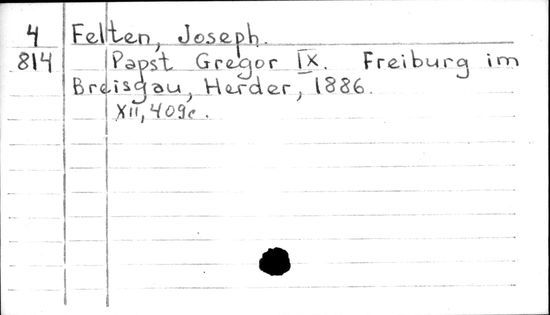 4 Felten, Joseph.
814 Papst Gregor IX. Freiburg im
Breisgau, Herder, 1886.
XII, 409c.